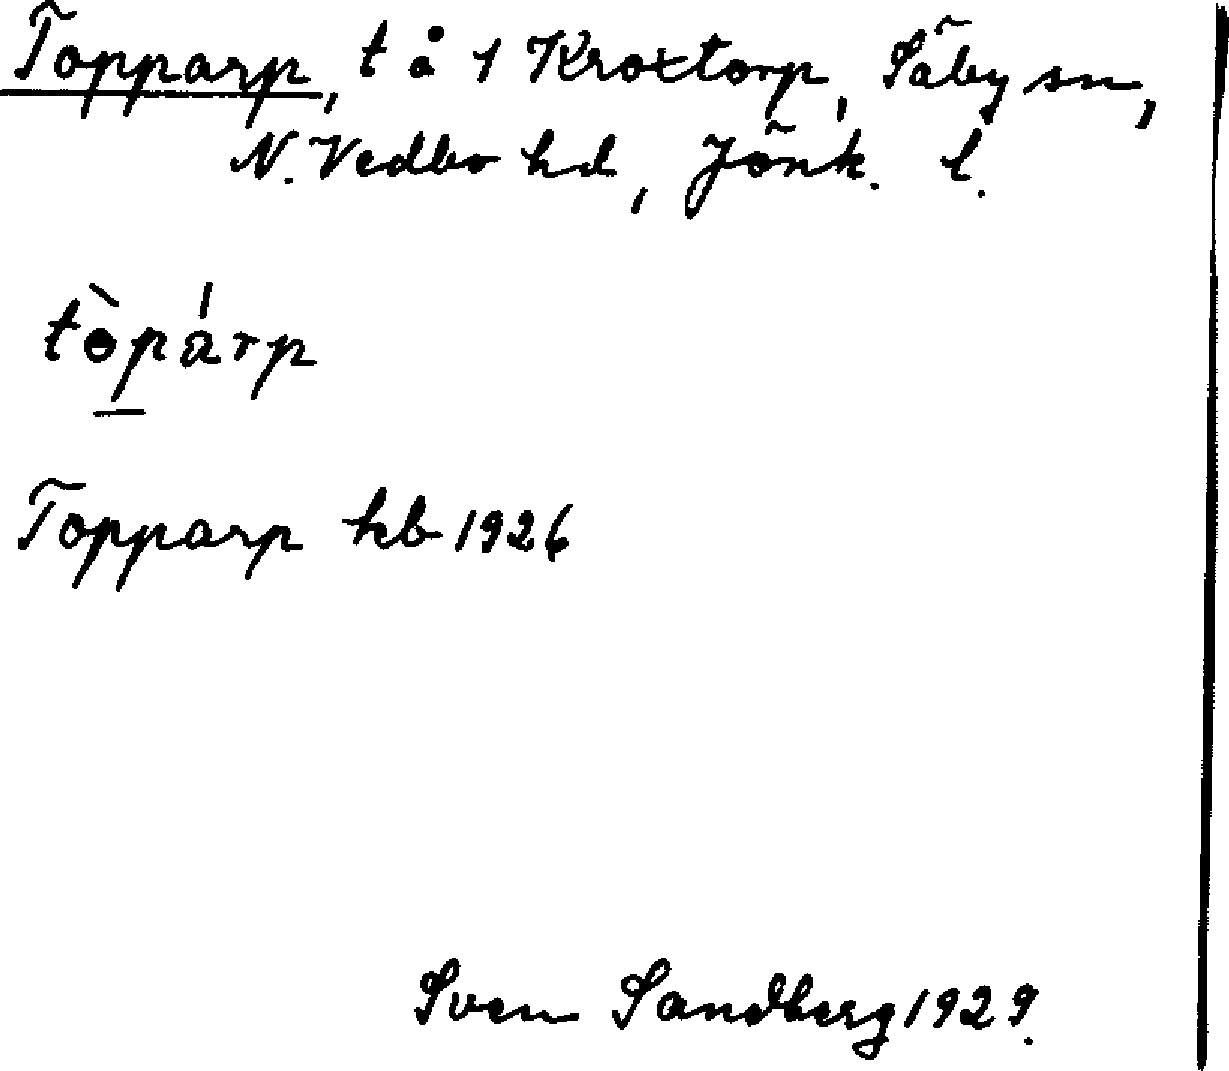 Topparp, t å 1 Kroxtorp, Säby sn,
N. Vedbo hd, Jönk. l.
tòpárp
Topparp kb 1926
Sven Sandberg 1929.